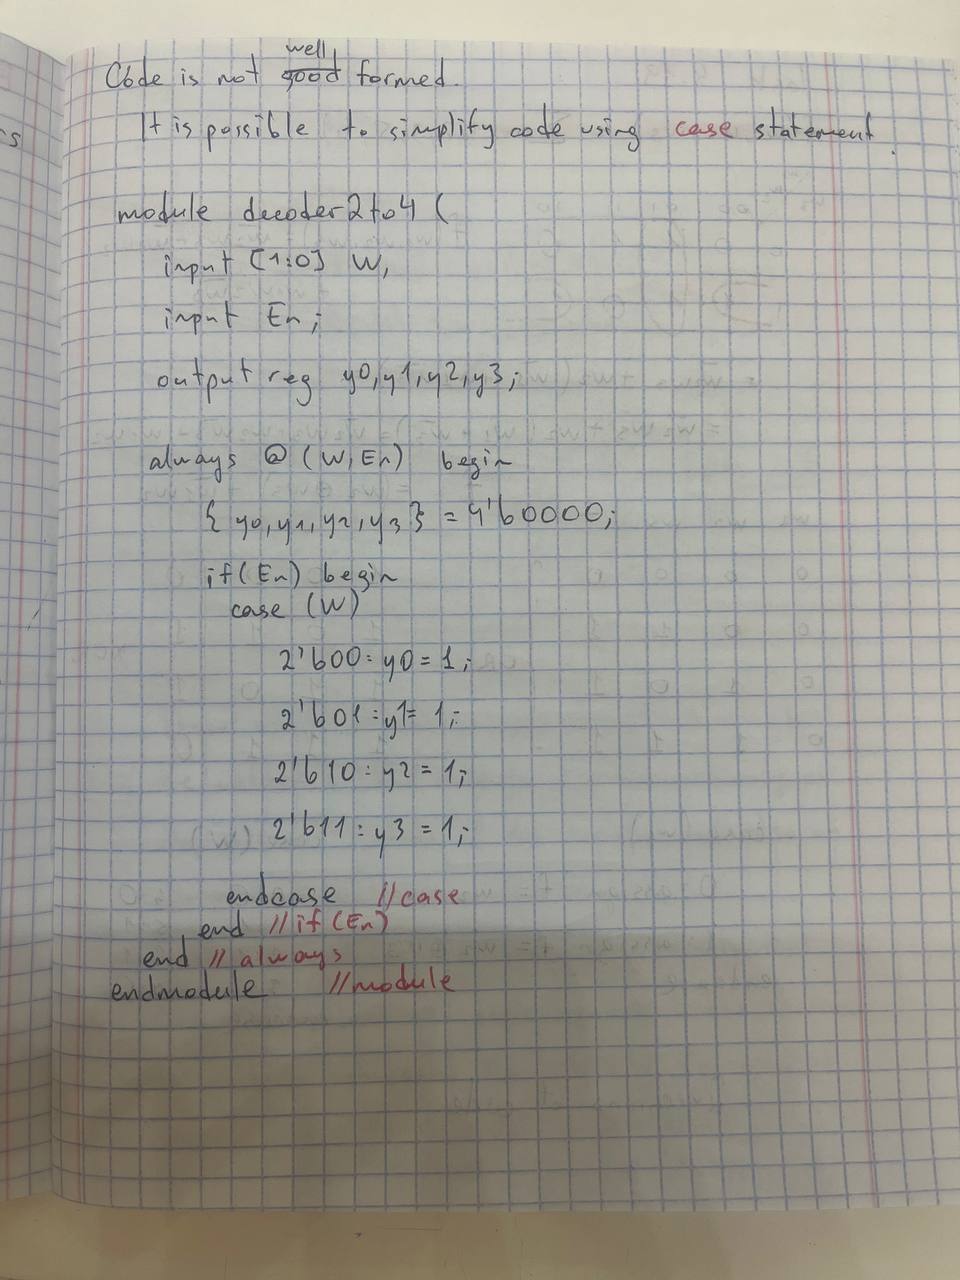 Code is not good well formed.
It is possible to simplify code using case statement.
module decoder2to4 (
input [1:0] W,
input En;
output reg y0,y1,y2,y3;
always @ (W,En) begin
{ y0,y1,y2,y3} = 4'b0000;
if(En) begin
case (W)
2'b00: y0 = 1;
2'b01: y1= 1;
2'b10: y2 = 1;
2'b11: y3 = 1;
endcase //case
end //if(En)
end //always
endmodule //module